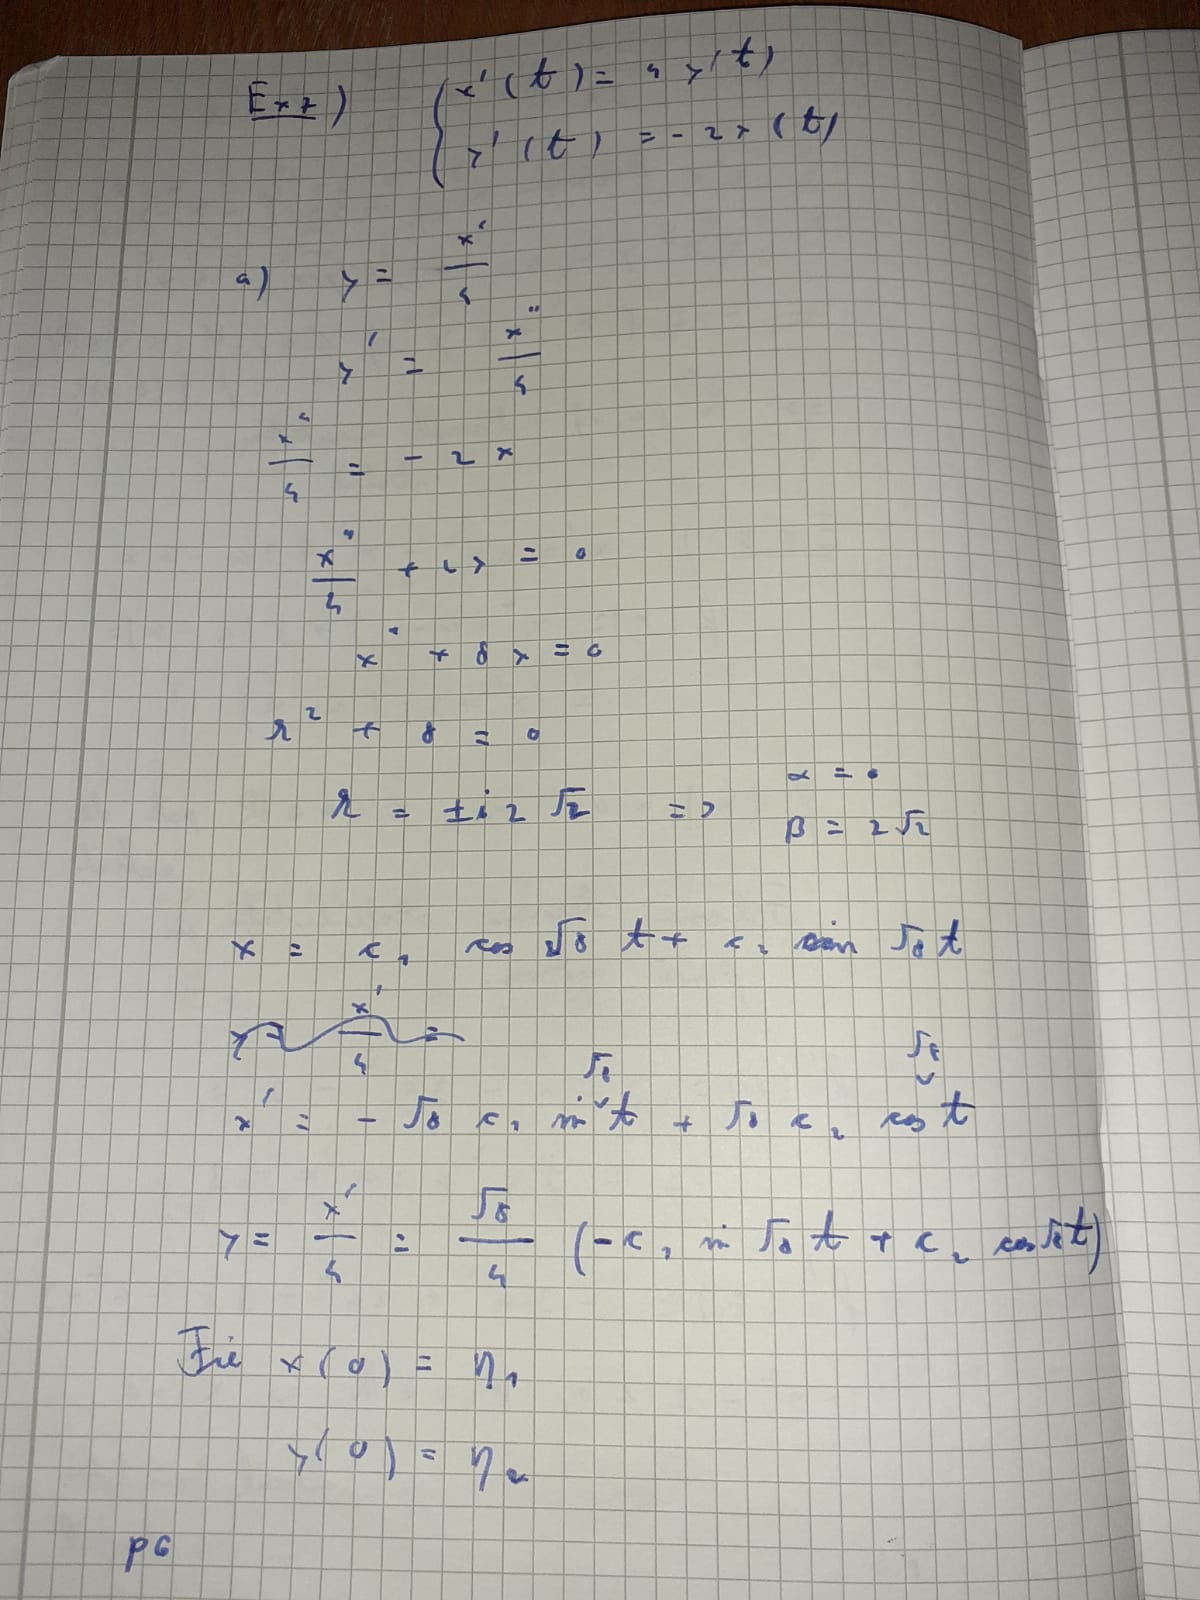 Ex2) { x'(t) = 4 y(t)
y'(t) = -2x(t)
a) y = x'/4
y' = x''/4
x''/4 = -2x
x''/4 + 2x = 0
x'' + 8x = 0
r² + 8 = 0
r = ±i2√2 => α = 0
β = 2√2
x = c₁ cos √8 t + c₂ sin √8 t
y = x'/4 =
x' = -√8 c₁ sin √8 t + √8 c₂ cos √8 t
y = x'/4 = √8/4 (-c₁ sin √8 t + c₂ cos √8 t)
Fie x(0) = η₁
y(0) = η₂
p6